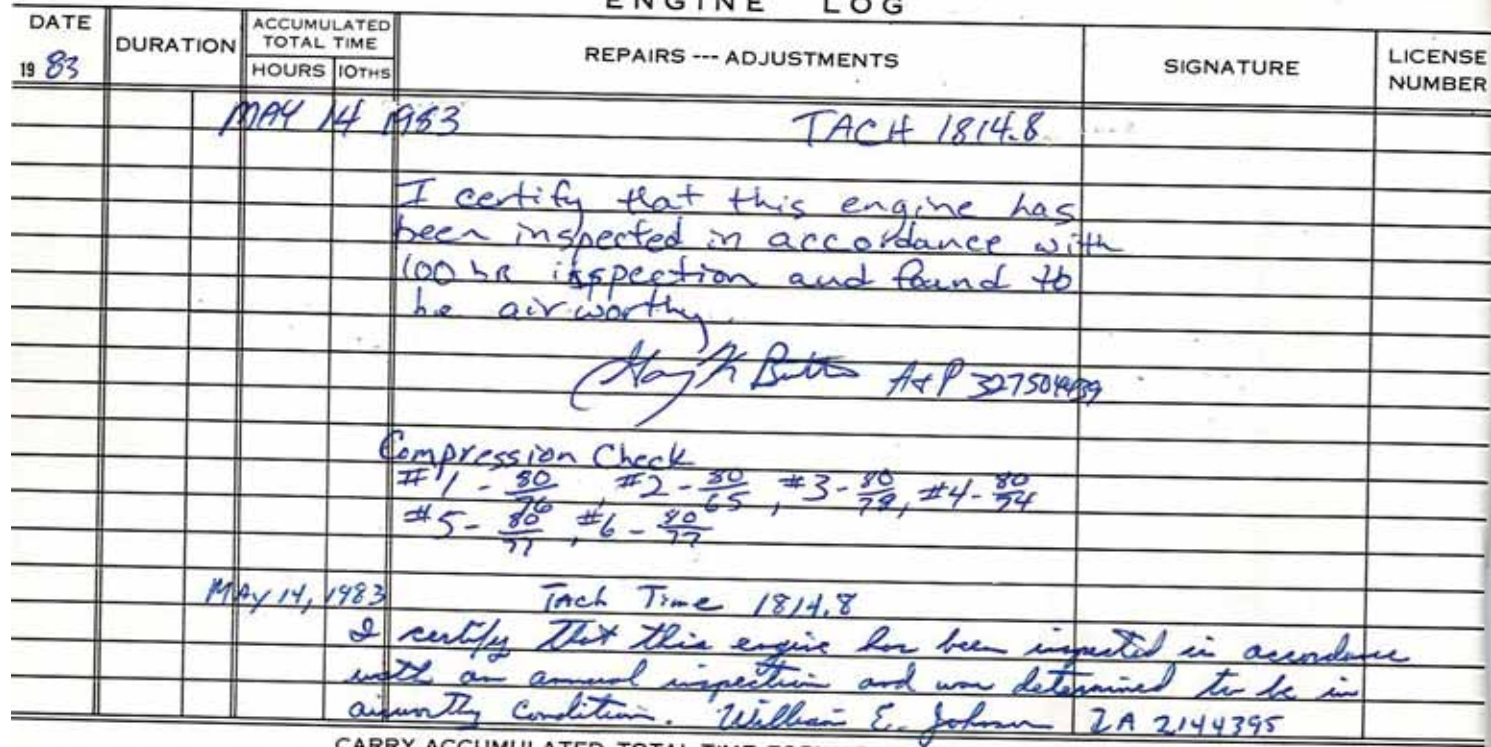 ENGINE LOG
DATE
19 83
DURATION
ACCUMULATED
TOTAL TIME
HOURS 10THS
REPAIRS --- ADJUSTMENTS
SIGNATURE
LICENSE
NUMBER
MAY 14 1983 TACH 1814.8
I certify that this engine has
been inspected in accordance with
100 hR inspection and found to
be airworthy.
A&P
Compression Check
#1 - 80/76, #2 - 80/65, #3 - 80/79, #4 - 80/
#5 - 80/77, #6 - 80/77
MAY 14, 1983 Tach Time 1814.8
I certify that this engine has been inspected in accordance
with an annual inspection and was determined to be in
airworthy condition. William E. Johnson IA 2144395
CARRY ACCUMULATED TOTAL TIME